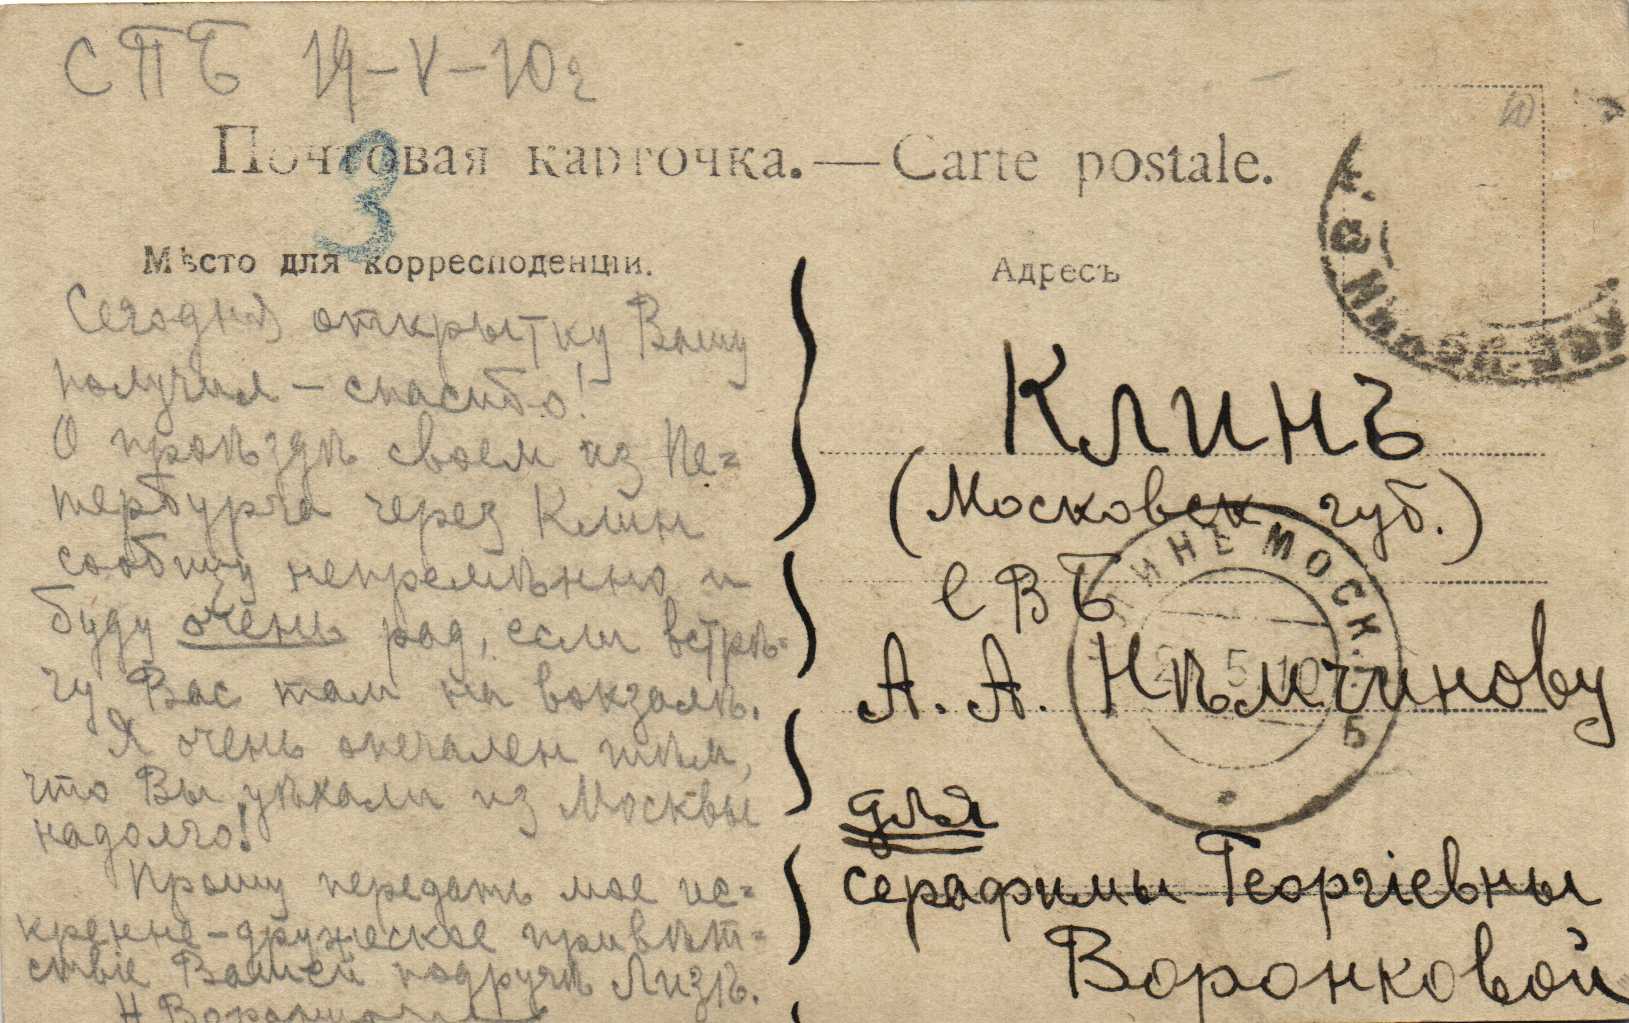 СПБ 19-V-10 г
Почтовая карточка. — Carte postale.
3
Мѣсто для корреспонденціи.
Сегодня открытку Вашу
получил – спасибо!
О проѣздѣ своем из Пе=
тербурга через Клин
сообщу непремѣнно и
буду очень рад, если встрѣ=
чу Вас там на вокзалѣ.
Я очень опечален тѣм,
что Вы уѣхали из Москвы
надолго!
Прошу передать мое ис=
кренне-дружеское привѣт=
ствіе Вашей подругѣ Лизѣ.
Адресъ
Клинъ
(Московск губ.)
ЕВБ
А. А. Нѣмчинову
для
Серафимы Георгіевны
Воронковой
КЛИНЕ МОСК.
5 10
Б